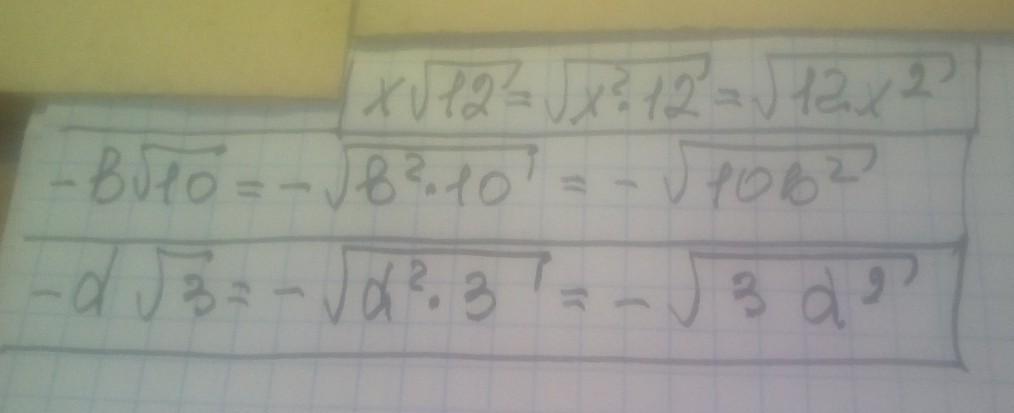 x√12 = √x²·12 = √12x²
-b√10 = -√b²·10 = -√10b²
-d√3 = -√d²·3 = -√3d²